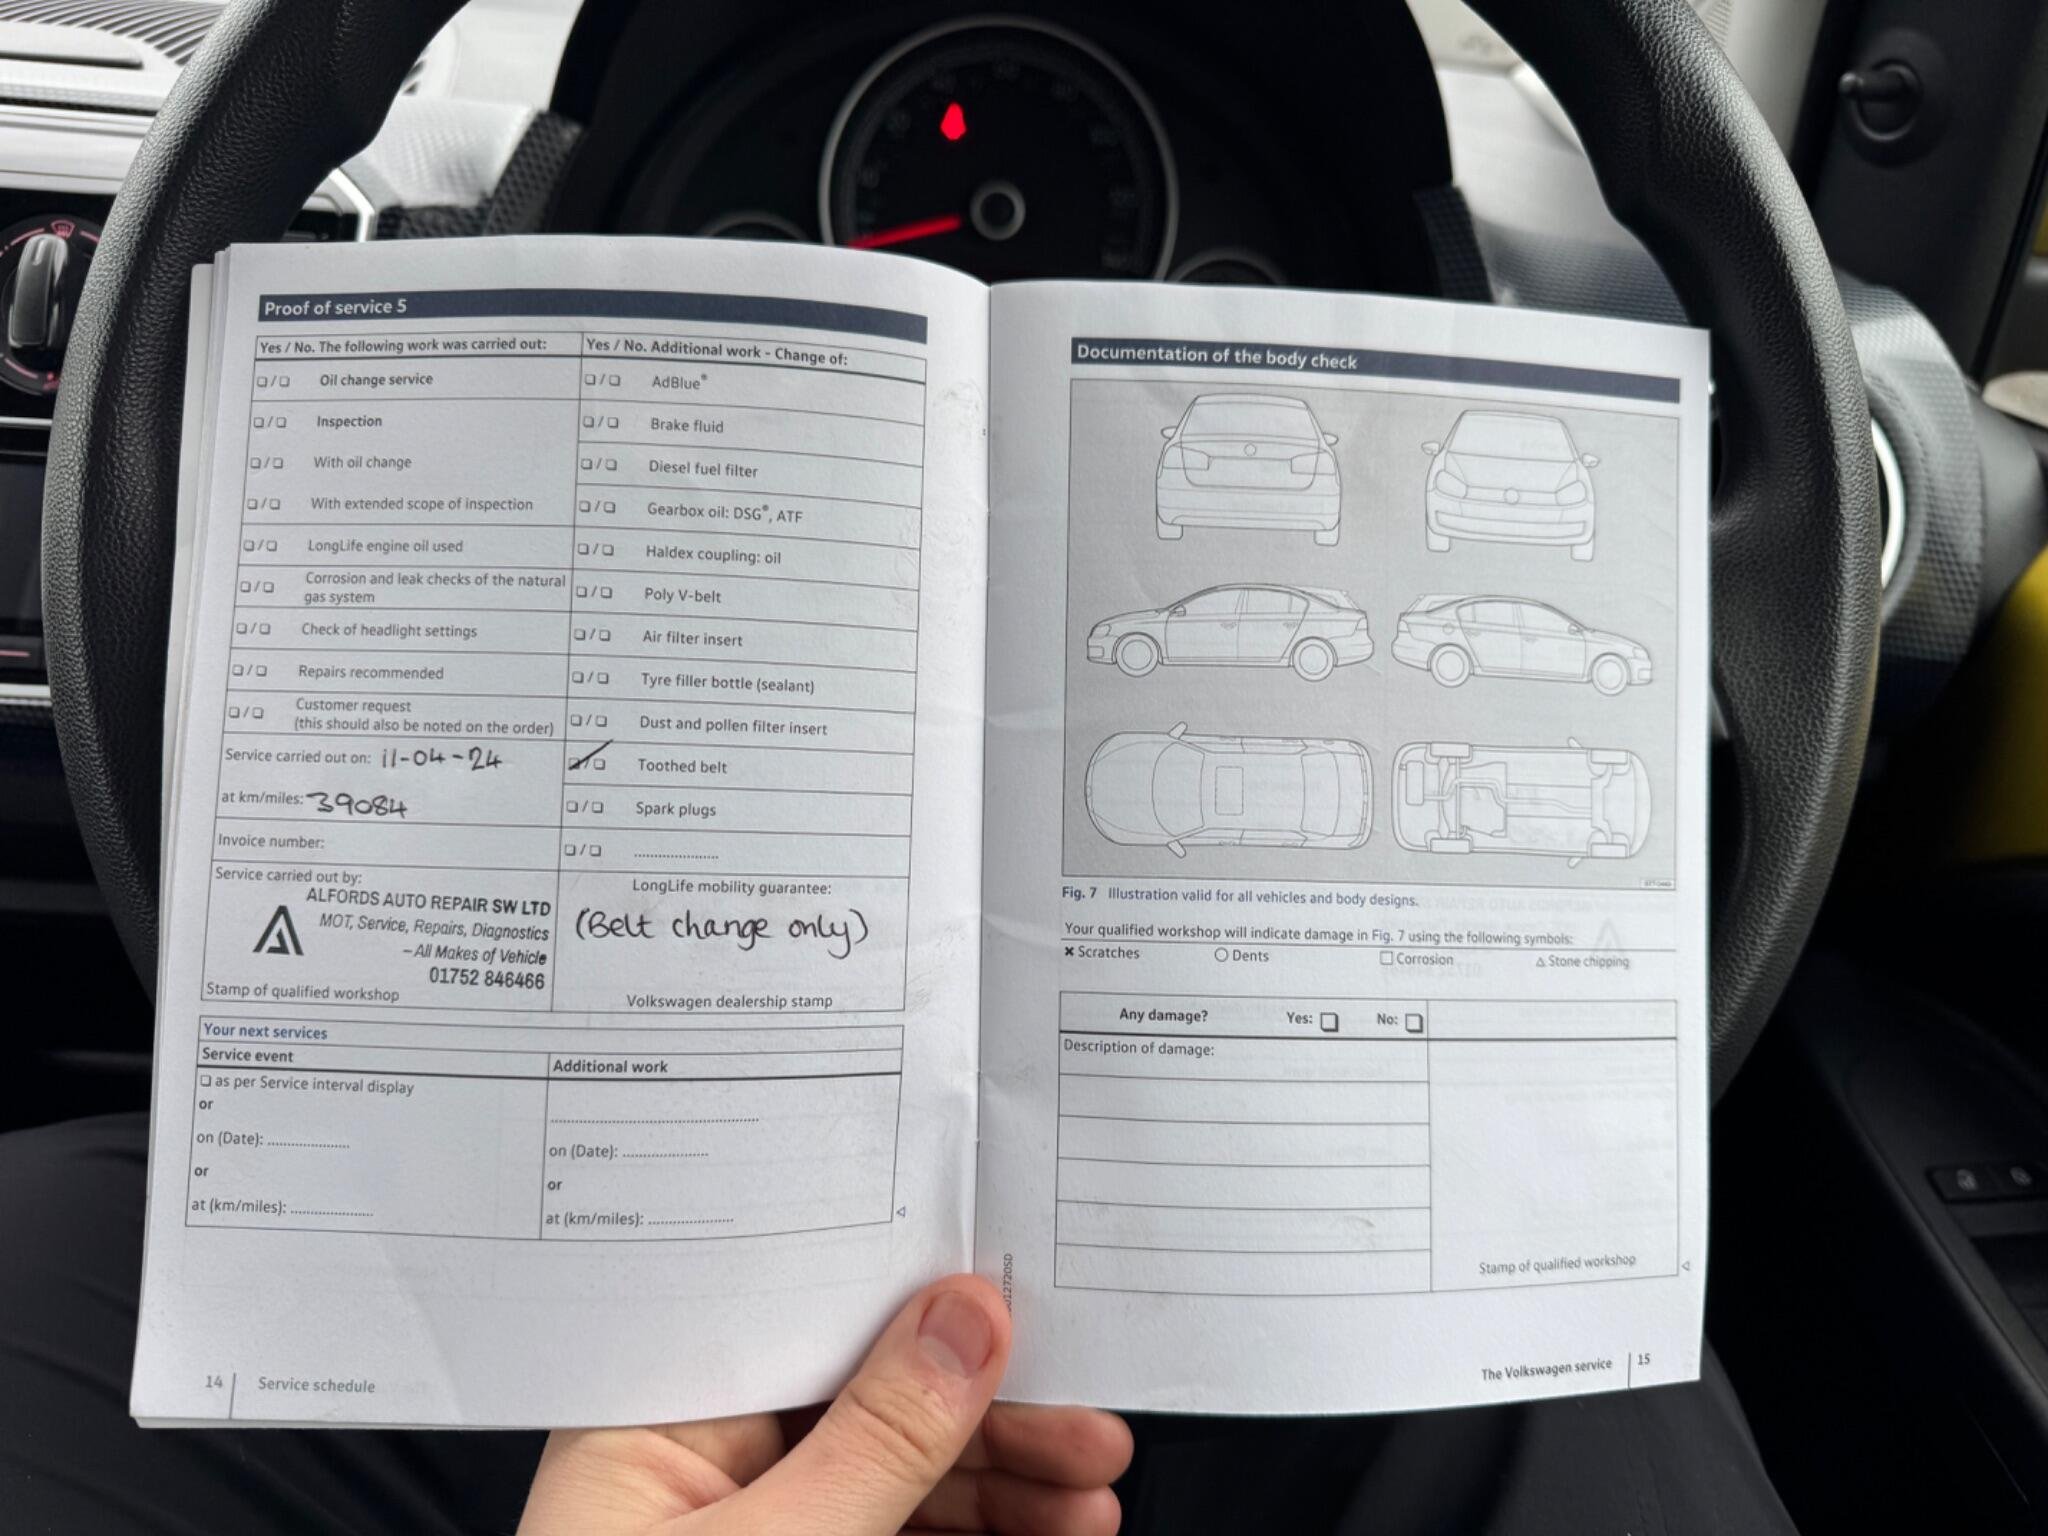 Proof of service 5
Yes / No. The following work was carried out:
❑ / ❑ Oil change service
❑ / ❑ Inspection
❑ / ❑ With oil change
❑ / ❑ With extended scope of inspection
❑ / ❑ LongLife engine oil used
❑ / ❑ Corrosion and leak checks of the natural
gas system
❑ / ❑ Check of headlight settings
❑ / ❑ Repairs recommended
❑ / ❑ Customer request
(this should also be noted on the order)
Service carried out on: 11-04-24
at km/miles: 39084
Invoice number:
Service carried out by:
ALFORDS AUTO REPAIR SW LTD
MOT, Service, Repairs, Diagnostics
–All Makes of Vehicle
01752 846466
Stamp of qualified workshop
Yes / No. Additional work - Change of:
❑ / ❑ AdBlue®
❑ / ❑ Brake fluid
❑ / ❑ Diesel fuel filter
❑ / ❑ Gearbox oil: DSG®, ATF
❑ / ❑ Haldex coupling: oil
❑ / ❑ Poly V-belt
❑ / ❑ Air filter insert
❑ / ❑ Tyre filler bottle (sealant)
❑ / ❑ Dust and pollen filter insert
✓ / ❑ Toothed belt
❑ / ❑ Spark plugs
❑ / ❑ .....................
LongLife mobility guarantee:
(Belt change only)
Volkswagen dealership stamp
Your next services
Service event
❑ as per Service interval display
or
on (Date): .....................
or
at (km/miles): .....................
Additional work
.....................................................
on (Date): .....................
or
at (km/miles): .....................
14 Service schedule
Documentation of the body check
Fig. 7 Illustration valid for all vehicles and body designs.
Your qualified workshop will indicate damage in Fig. 7 using the following symbols:
✖ Scratches ○ Dents □ Corrosion △ Stone chipping
Any damage? Yes: ❑ No: ❑
Description of damage:
Stamp of qualified workshop
The Volkswagen service 15